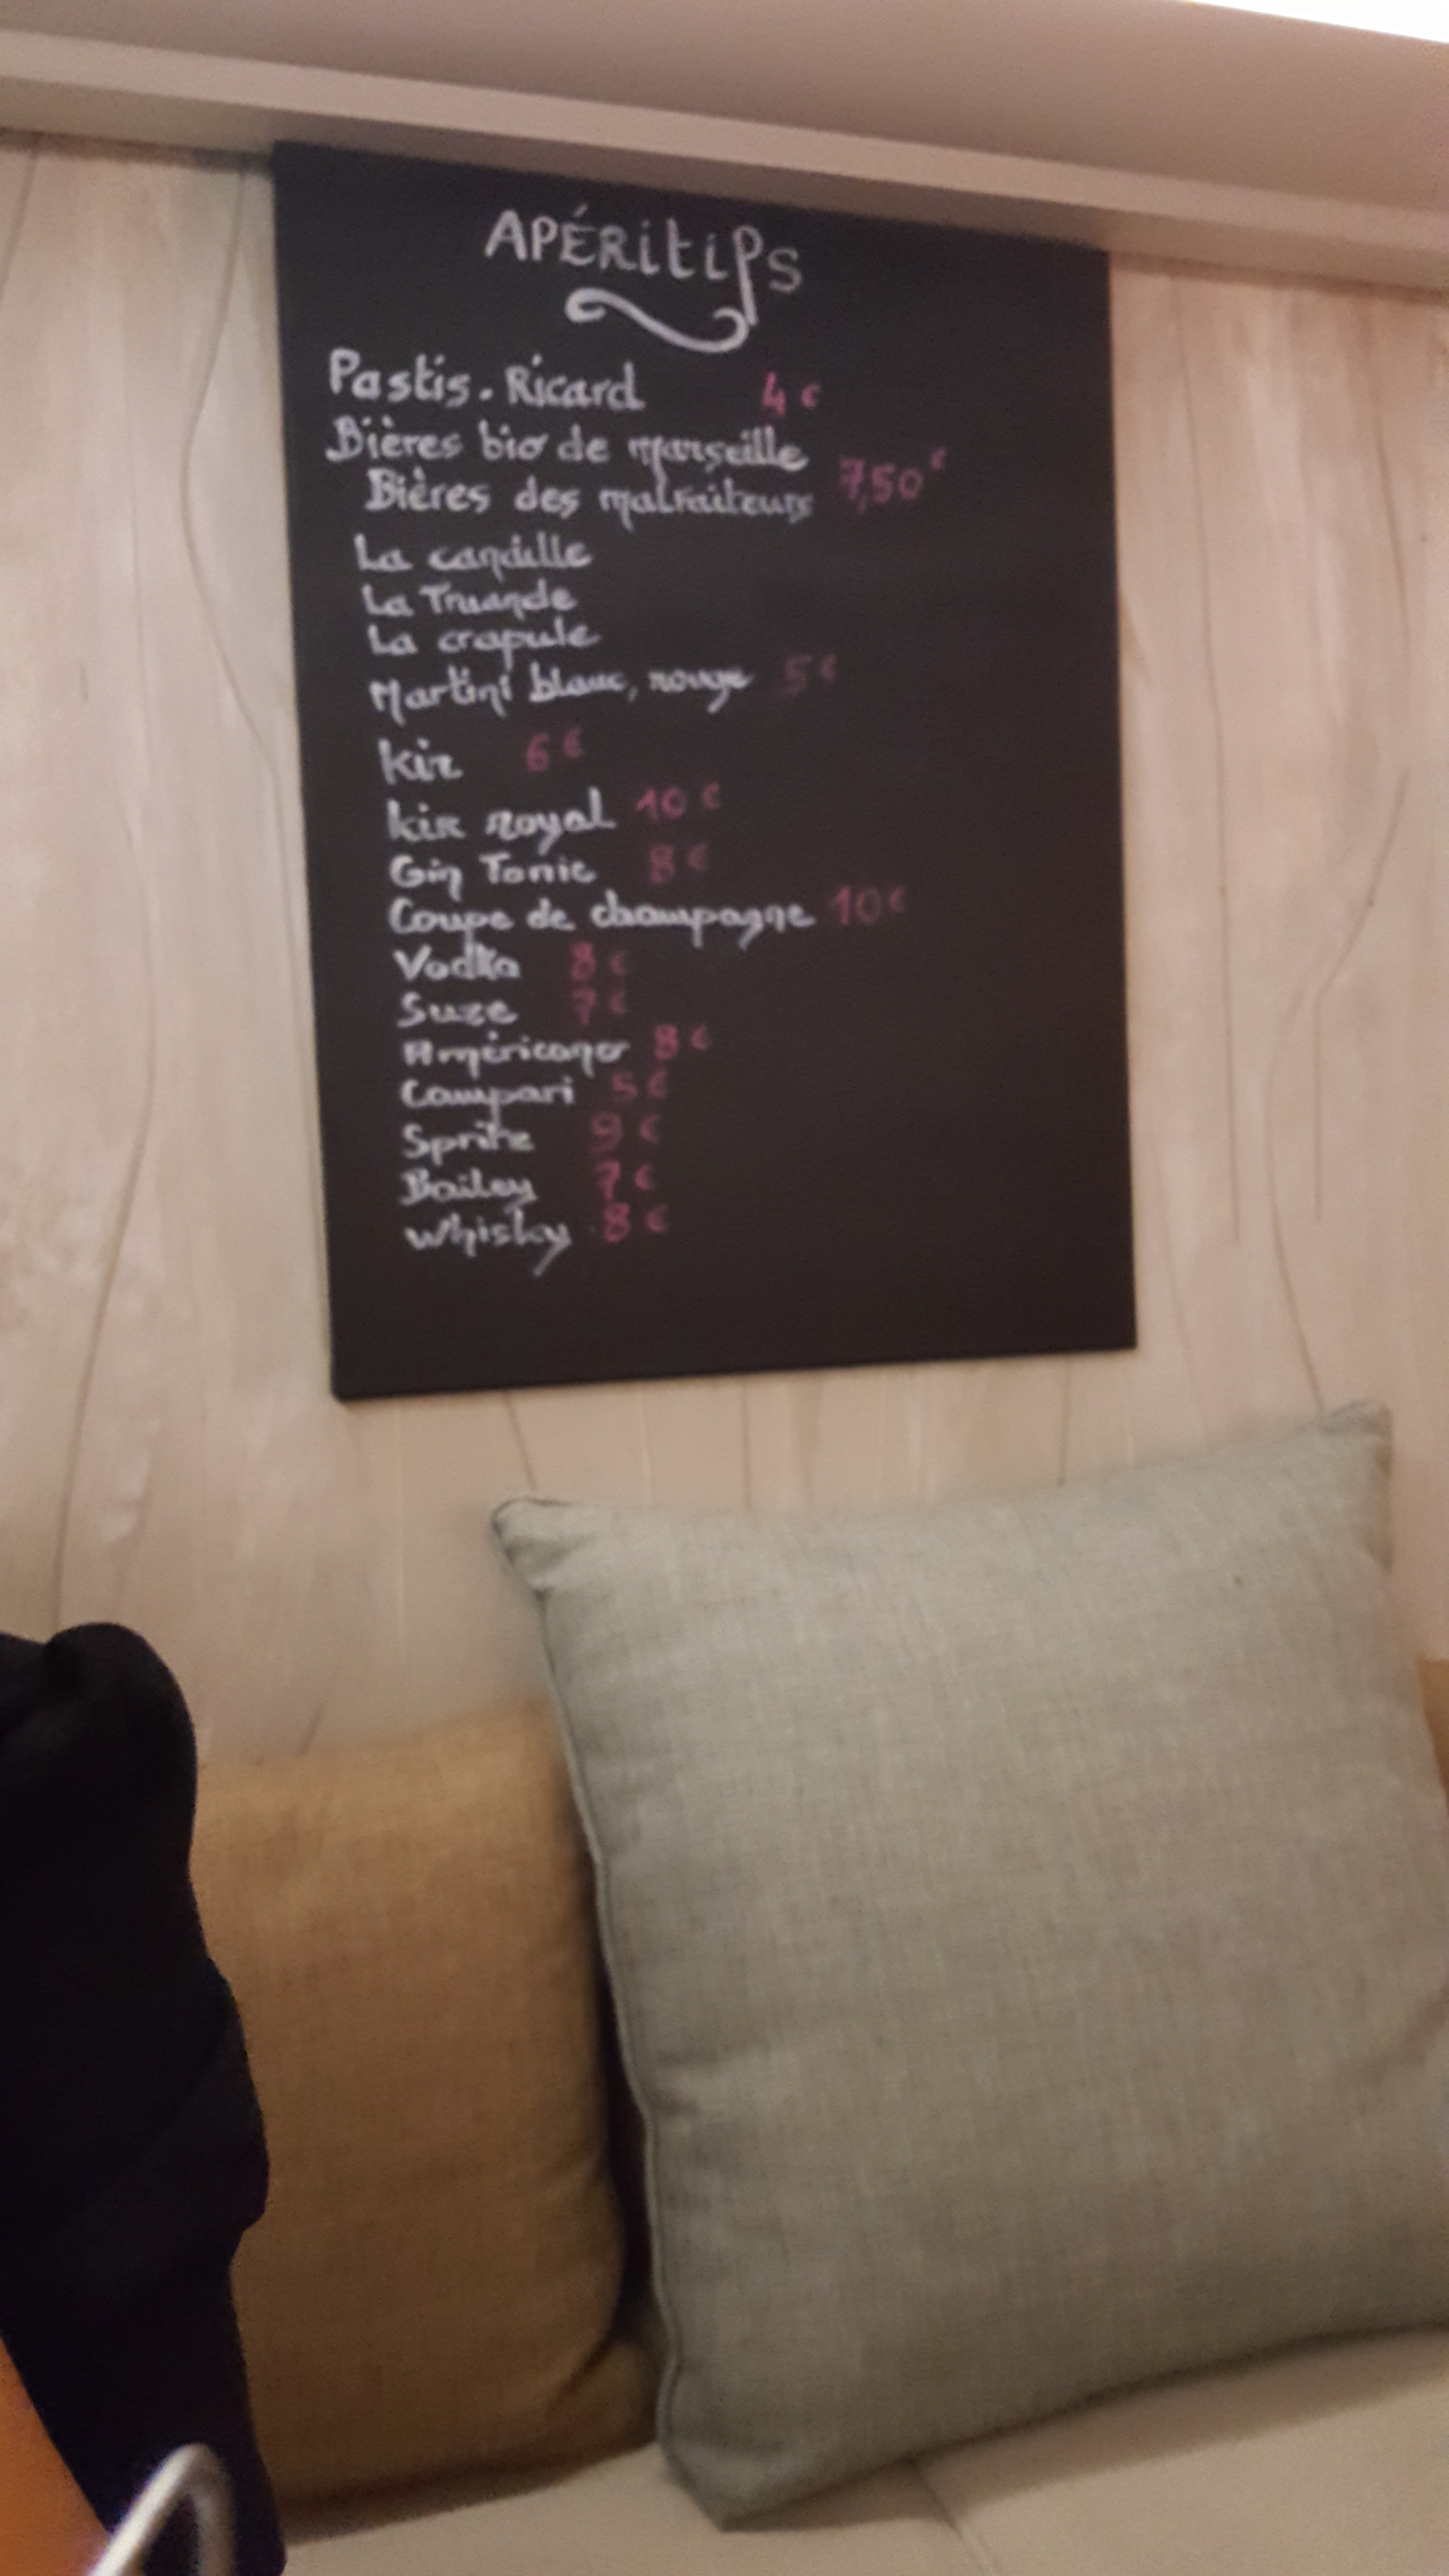 APÉRitifs
Pastis. Ricard 4 €
Bières bio de marseille
Bières des malfaiteurs 7,50 €
La canaille
La Truande
La crapule
Martini blanc, rouge 5 €
kir 6 €
kir royal 10 €
Gin Tonic 8 €
Coupe de champagne 10 €
Vodka 8 €
Suze 7 €
Américano 8 €
Campari 5 €
Spritz 9 €
Bailey 7 €
whisky 8 €